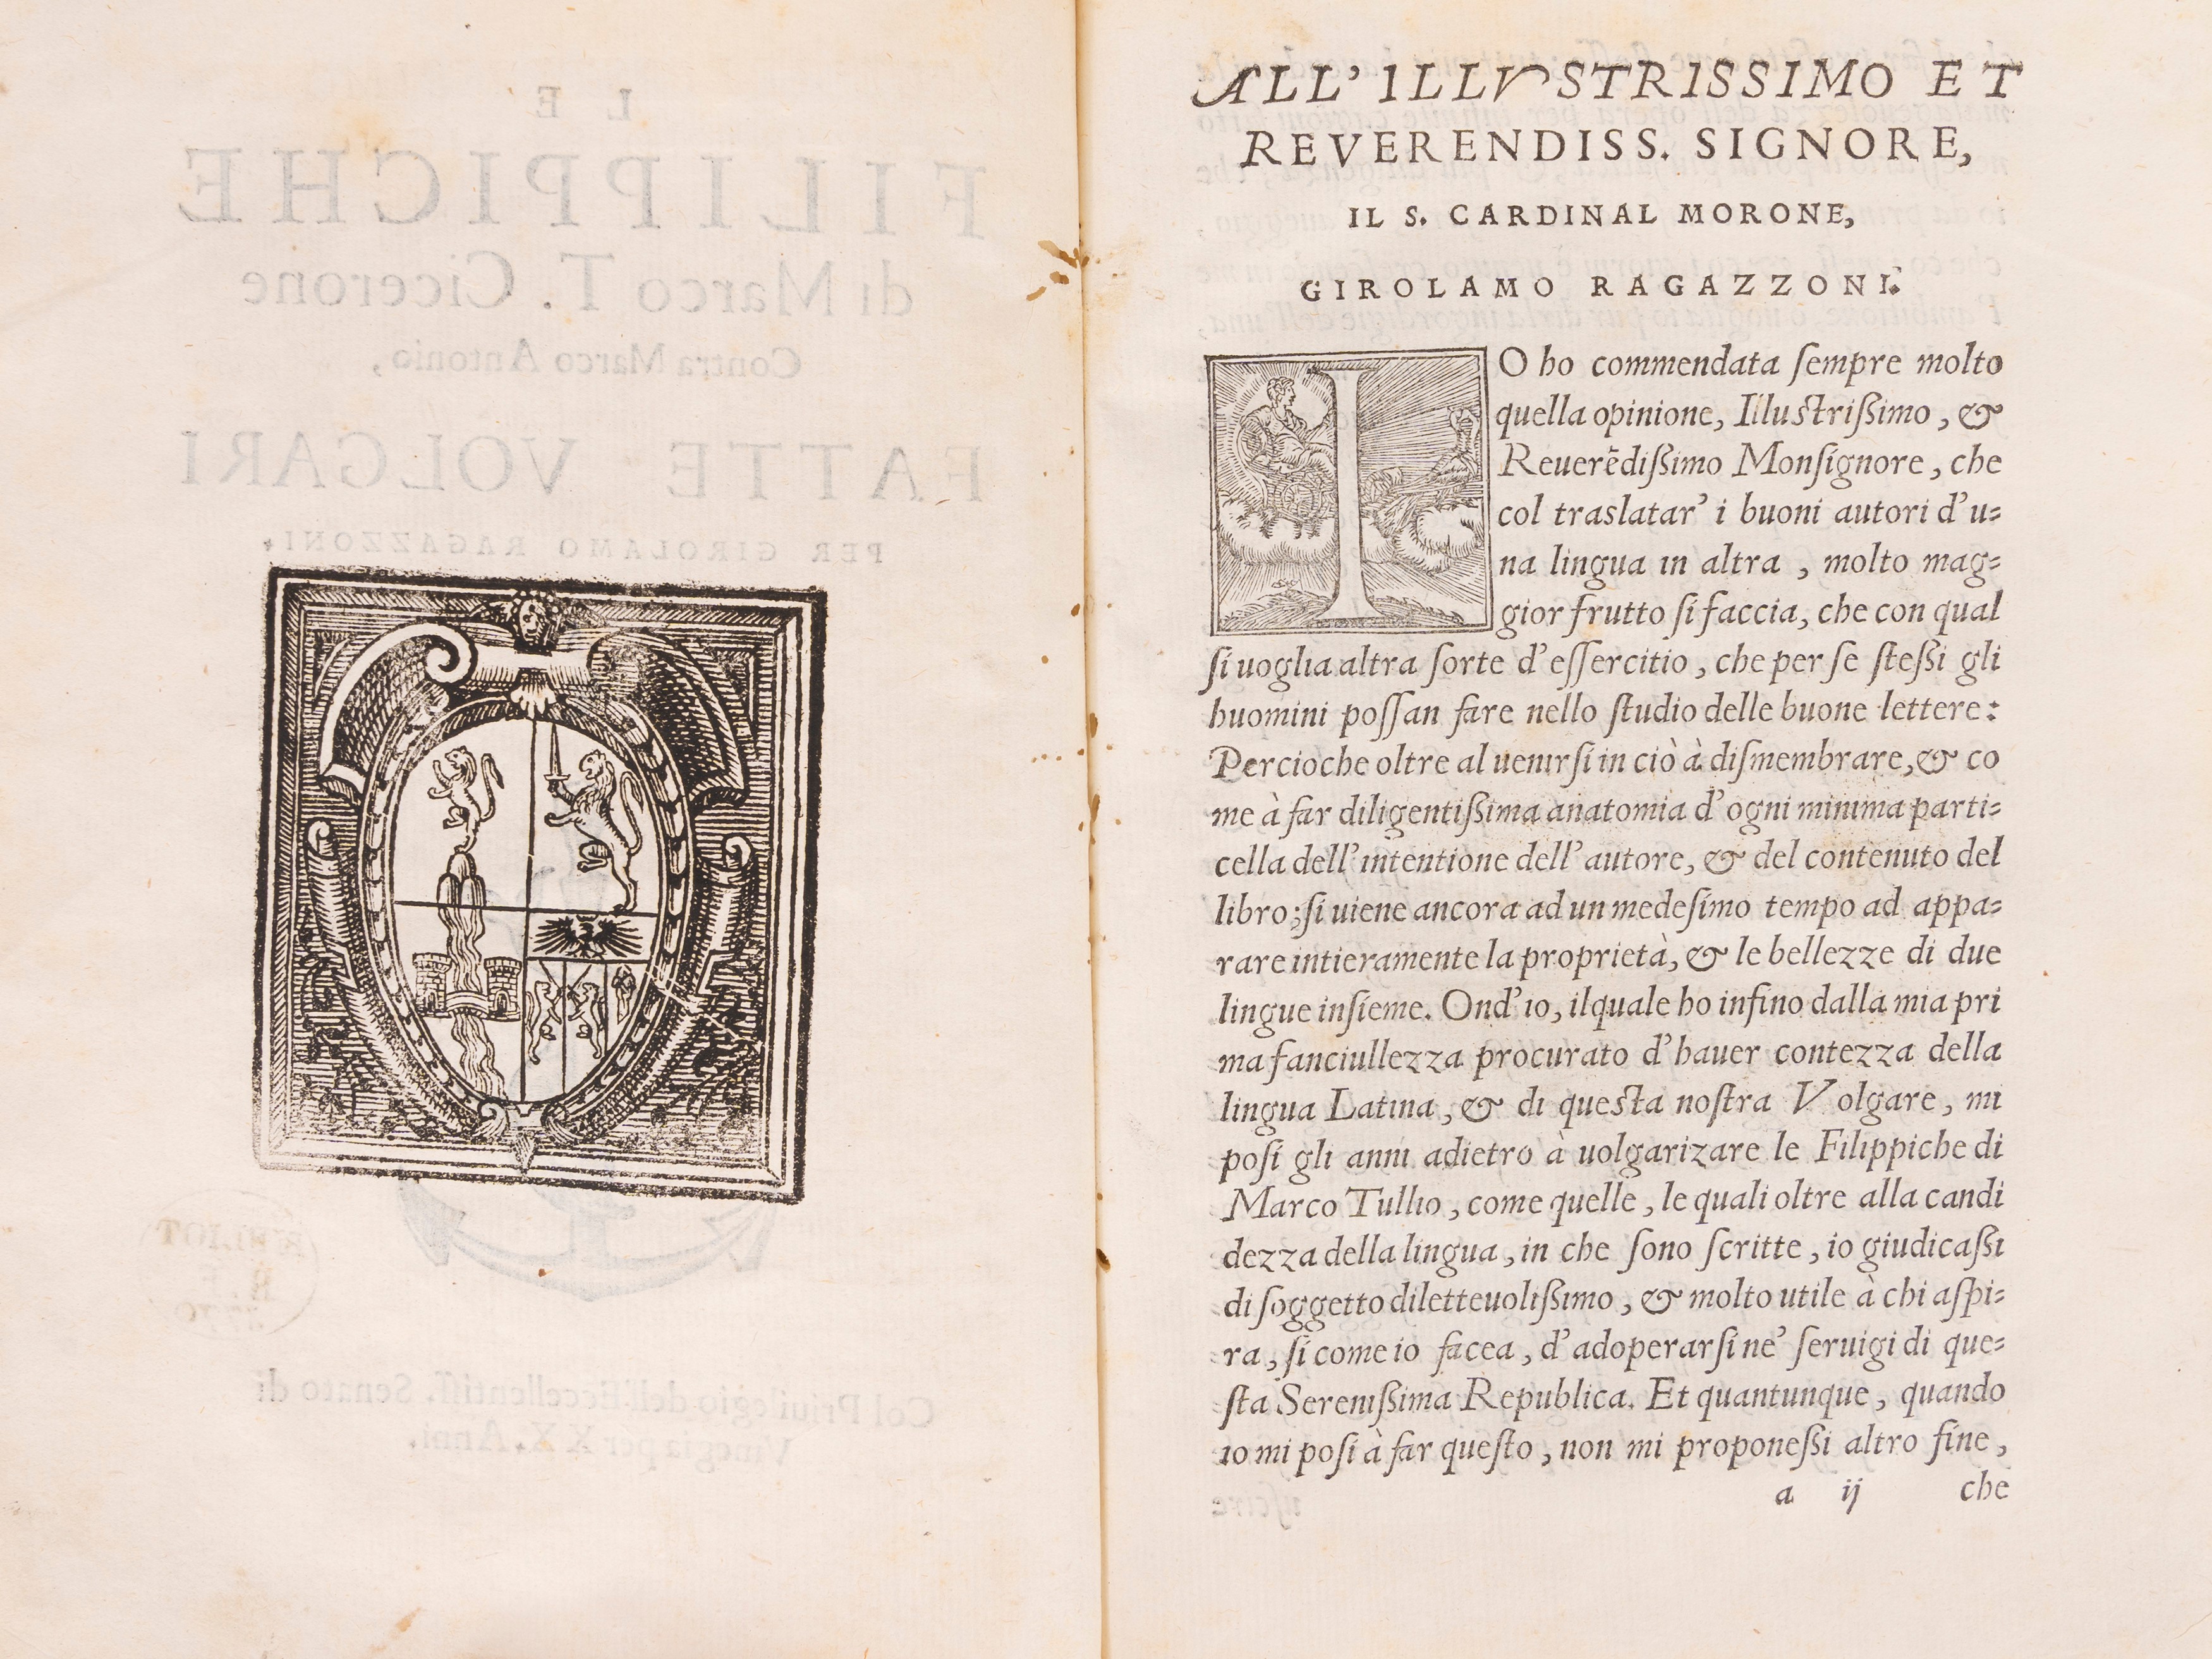 LE
FILIPPICHE
di Marco T. Cicerone
Contra Marco Antonio,
FATTE VOLGARI
PER GIROLAMO RAGAZZONI.
Col Priuilegio dell'Eccellentiſſ. Senato di
Vinegia per XX. Anni.
ALL' ILLVSTRISSIMO ET
REVERENDISS. SIGNORE,
IL S. CARDINAL MORONE,
GIROLAMO RAGAZZONI.
IO ho commendata ſempre molto
quella opinione, Illuſtriſſimo, &
Reuerẽdiſſimo Monſignore, che
col traslatar' i buoni autori d'u-
na lingua in altra, molto mag-
gior frutto ſi faccia, che con qual
ſi uoglia altra ſorte d'eſſercitio, che per ſe ſteſſi gli
huomini poſſan fare nello ſtudio delle buone lettere:
Percioche oltre al uenirſi in ciò à diſmembrare, & co
me à far diligentiſſima anatomia d'ogni minima parti-
cella dell'intentione dell'autore, & del contenuto del
libro; ſi uiene ancora ad un medeſimo tempo ad appa-
rare intieramente la proprietà, & le bellezze di due
lingue inſieme. Ond'io, ilquale ho infino dalla mia pri
ma fanciullezza procurato d'hauer contezza della
lingua Latina, & di queſta noſtra Volgare, mi
poſi gli anni adietro à uolgarizare le Filippiche di
Marco Tullio, come quelle, le quali oltre alla candi
dezza della lingua, in che ſono ſcritte, io giudicaſſi
di ſoggetto diletteuoliſſimo, & molto utile à chi aſpi-
ra, ſi come io facea, d'adoperarſi ne' ſeruigi di que-
ſta Sereniſſima Republica. Et quantunque, quando
io mi poſi à far queſto, non mi proponeſſi altro fine,
a ij che